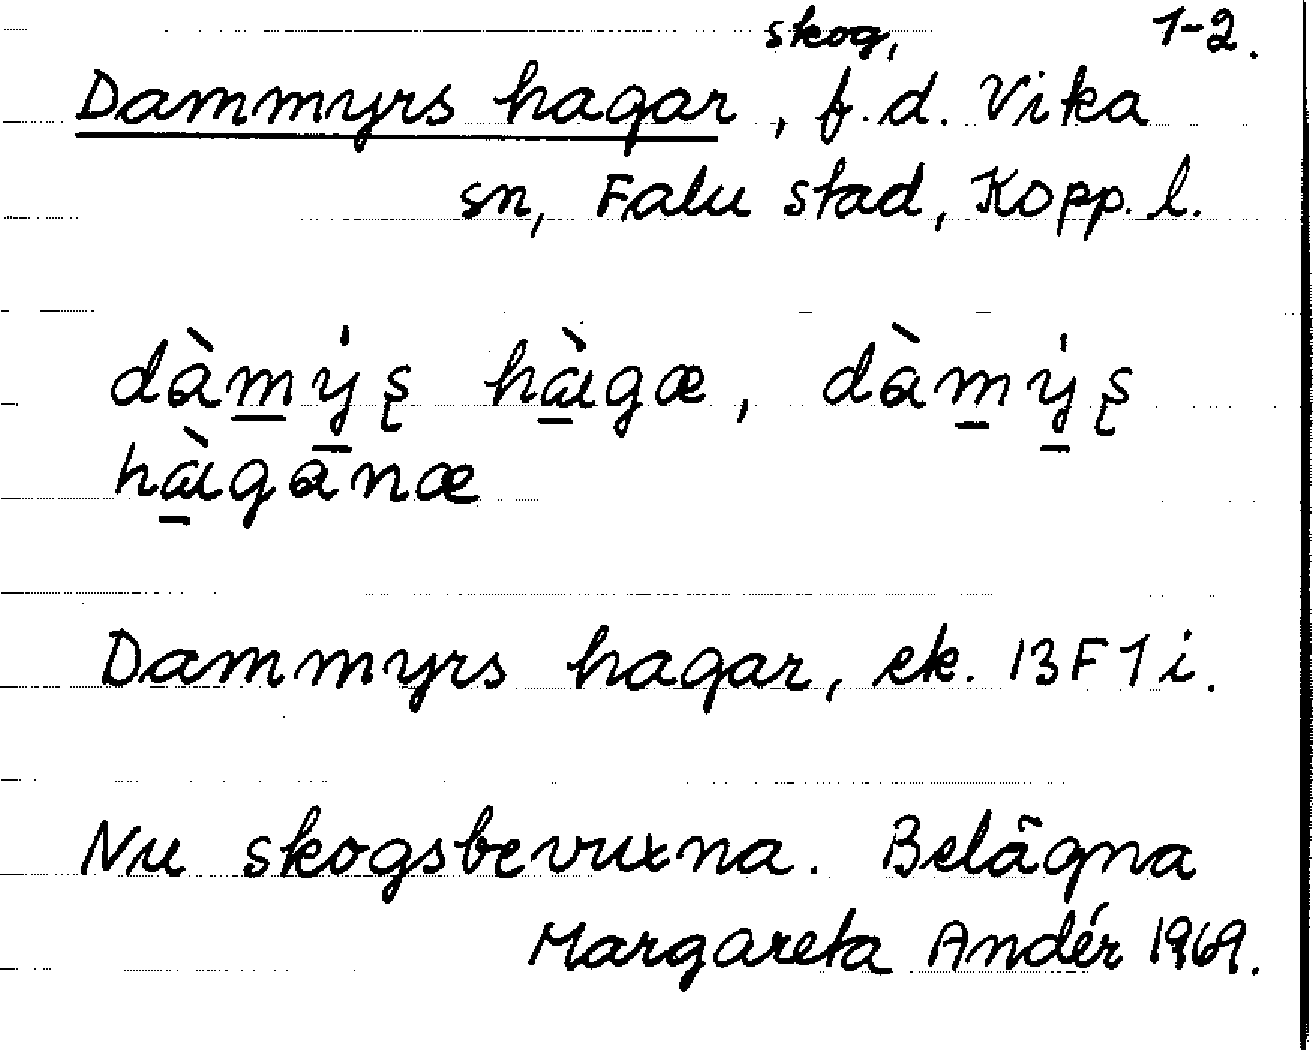 skog, 1-2.
Dammyrs hagar, f.d. Vika
sn, Falu stad, Kopp. l.
dàm̲ý̲ʂ hà̲gæ, dàm̲ý̲ʂ
hà̲ganæ
Dammyrs hagar, ek. 13F1i.
Nu skogsbevuxna. Belägna
Margareta Andér 1969.